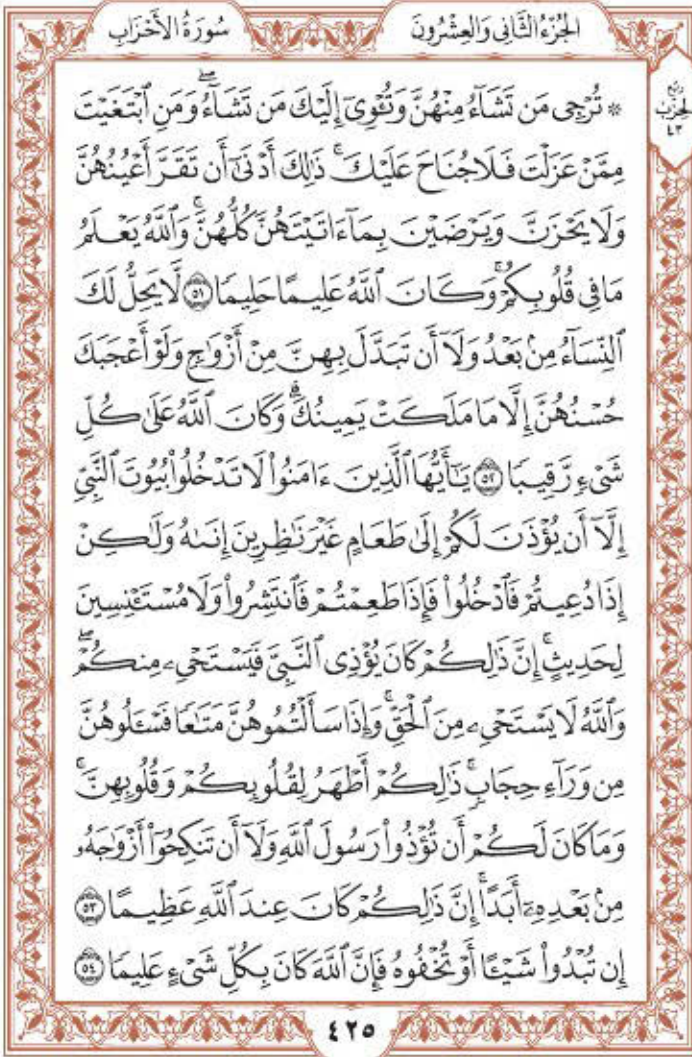 الجُزْءُ الثَّانِي وَالعِشْرُونَ سُورَةُ الأَحْزَابِ
رُبْع
الحِزْب
٤٣
۞ تُرْجِي مَن تَشَآءُ مِنْهُنَّ وَتُـْٔوِيٓ إِلَيْكَ مَن تَشَآءُۖ وَمَنِ ٱبْتَغَيْتَ
مِمَّنْ عَزَلْتَ فَلَا جُنَاحَ عَلَيْكَۚ ذَٰلِكَ أَدْنَىٰٓ أَن تَقَرَّ أَعْيُنُهُنَّ
وَلَا يَحْزَنَّ وَيَرْضَيْنَ بِمَآ ءَاتَيْتَهُنَّ كُلُّهُنَّۚ وَٱللَّهُ يَعْلَمُ
مَا فِي قُلُوبِكُمْۚ وَكَانَ ٱللَّهُ عَلِيمًا حَلِيمًا ٥١ لَّا يَحِلُّ لَكَ
ٱلنِّسَآءُ مِنۢ بَعْدُ وَلَآ أَن تَبَدَّلَ بِهِنَّ مِنْ أَزْوَٰجٍ وَلَوْ أَعْجَبَكَ
حُسْنُهُنَّ إِلَّا مَا مَلَكَتْ يَمِينُكَۗ وَكَانَ ٱللَّهُ عَلَىٰ كُلِّ
شَيْءٍ رَّقِيبًا ٥٢ يَـٰٓأَيُّهَا ٱلَّذِينَ ءَامَنُوا۟ لَا تَدْخُلُوا۟ بُيُوتَ ٱلنَّبِيِّ
إِلَّآ أَن يُؤْذَنَ لَكُمْ إِلَىٰ طَعَامٍ غَيْرَ نَـٰظِرِينَ إِنَىٰهُ وَلَـٰكِنْ
إِذَا دُعِيتُمْ فَٱدْخُلُوا۟ فَإِذَا طَعِمْتُمْ فَٱنتَشِرُوا۟ وَلَا مُسْتَـْٔنِسِينَ
لِحَدِيثٍۚ إِنَّ ذَٰلِكُمْ كَانَ يُؤْذِي ٱلنَّبِيَّ فَيَسْتَحْيِۦ مِنكُمْۖ
وَٱللَّهُ لَا يَسْتَحْيِۦ مِنَ ٱلْحَقِّۚ وَإِذَا سَأَلْتُمُوهُنَّ مَتَـٰعًا فَسْـَٔلُوهُنَّ
مِن وَرَآءِ حِجَابٍۚ ذَٰلِكُمْ أَطْهَرُ لِقُلُوبِكُمْ وَقُلُوبِهِنَّۚ
وَمَا كَانَ لَكُمْ أَن تُؤْذُوا۟ رَسُولَ ٱللَّهِ وَلَآ أَن تَنكِحُوٓا۟ أَزْوَٰجَهُۥ
مِنۢ بَعْدِهِۦٓ أَبَدًاۚ إِنَّ ذَٰلِكُمْ كَانَ عِندَ ٱللَّهِ عَظِيمًا ٥٣
إِن تُبْدُوا۟ شَيْـًٔا أَوْ تُخْفُوهُ فَإِنَّ ٱللَّهَ كَانَ بِكُلِّ شَيْءٍ عَلِيمًا ٥٤
٤٢٥